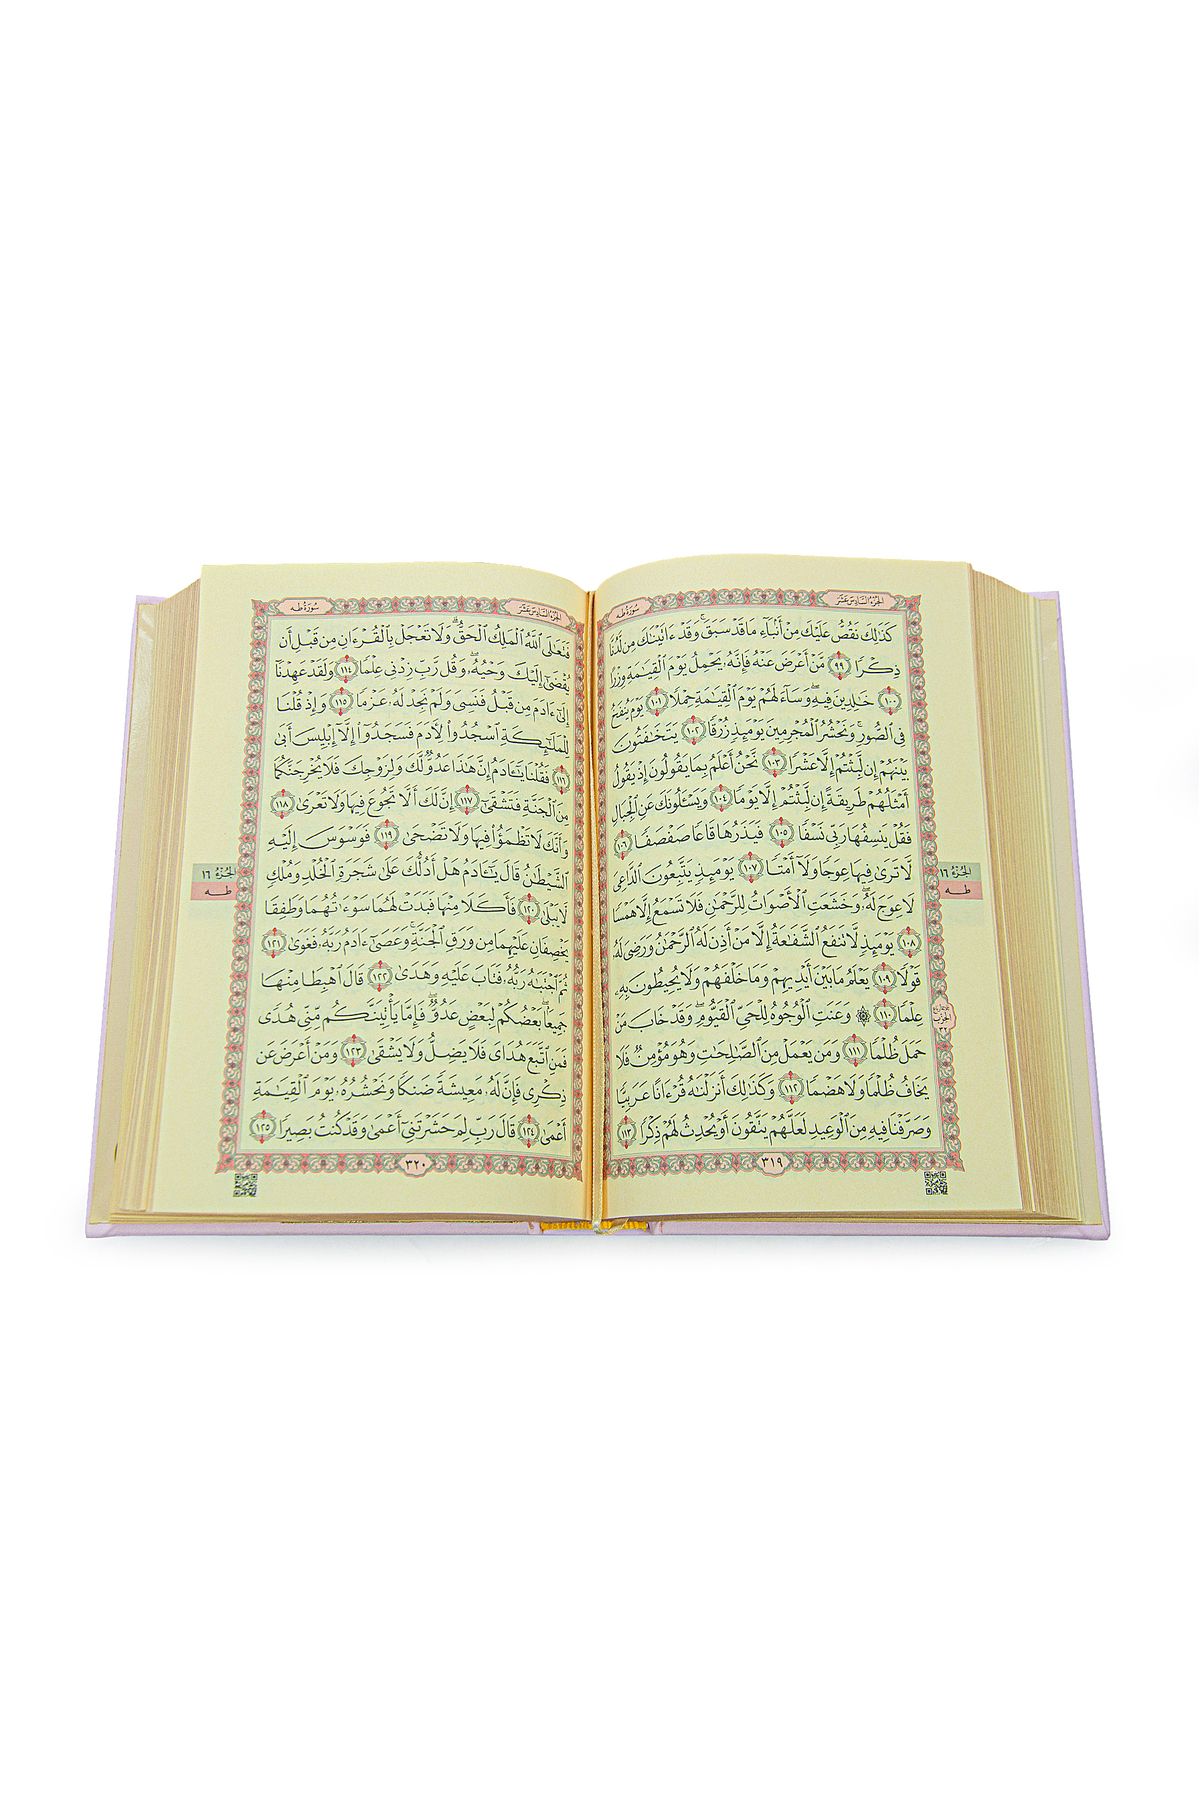 الجُزءُ السَّادِسَ عَشَرَ
سُورَةُ طه
كَذَٰلِكَ نَقُصُّ عَلَيْكَ مِنْ أَنۢبَآءِ مَا قَدْ سَبَقَۚ وَقَدْ ءَاتَيْنَٰكَ مِن لَّدُنَّا
ذِكْرًا ٩٩ مَّنْ أَعْرَضَ عَنْهُ فَإِنَّهُۥ يَحْمِلُ يَوْمَ ٱلْقِيَٰمَةِ وِزْرًا
١٠٠ خَٰلِدِينَ فِيهِۖ وَسَآءَ لَهُمْ يَوْمَ ٱلْقِيَٰمَةِ حِمْلًا ١٠١ يَوْمَ يُنفَخُ
فِي ٱلصُّورِۚ وَنَحْشُرُ ٱلْمُجْرِمِينَ يَوْمَئِذٍ زُرْقًا ١٠٢ يَتَخَٰفَتُونَ
بَيْنَهُمْ إِن لَّبِثْتُمْ إِلَّا عَشْرًا ١٠٣ نَّحْنُ أَعْلَمُ بِمَا يَقُولُونَ إِذْ يَقُولُ
أَمْثَلُهُمْ طَرِيقَةً إِن لَّبِثْتُمْ إِلَّا يَوْمًا ١٠٤ وَيَسْـَٔلُونَكَ عَنِ ٱلْجِبَالِ
فَقُلْ يَنسِفُهَا رَبِّي نَسْفًا ١٠٥ فَيَذَرُهَا قَاعًا صَفْصَفًا ١٠٦
لَّا تَرَىٰ فِيهَا عِوَجًا وَلَآ أَمْتًا ١٠٧ يَوْمَئِذٍ يَتَّبِعُونَ ٱلدَّاعِيَ
لَا عِوَجَ لَهُۥۖ وَخَشَعَتِ ٱلْأَصْوَاتُ لِلرَّحْمَٰنِ فَلَا تَسْمَعُ إِلَّا هَمْسًا
١٠٨ يَوْمَئِذٍ لَّا تَنفَعُ ٱلشَّفَٰعَةُ إِلَّا مَنْ أَذِنَ لَهُ ٱلرَّحْمَٰنُ وَرَضِيَ لَهُۥ
قَوْلًا ١٠٩ يَعْلَمُ مَا بَيْنَ أَيْدِيهِمْ وَمَا خَلْفَهُمْ وَلَا يُحِيطُونَ بِهِۦ
عِلْمًا ١١٠ ۞ وَعَنَتِ ٱلْوُجُوهُ لِلْحَيِّ ٱلْقَيُّومِۖ وَقَدْ خَابَ مَنْ
حَمَلَ ظُلْمًا ١١١ وَمَن يَعْمَلْ مِنَ ٱلصَّٰلِحَٰتِ وَهُوَ مُؤْمِنٌ فَلَا
يَخَافُ ظُلْمًا وَلَا هَضْمًا ١١٢ وَكَذَٰلِكَ أَنزَلْنَٰهُ قُرْءَانًا عَرَبِيًّا
وَصَرَّفْنَا فِيهِ مِنَ ٱلْوَعِيدِ لَعَلَّهُمْ يَتَّقُونَ أَوْ يُحْدِثُ لَهُمْ ذِكْرًا ١١٣
٣١٩
الجُزْءُ ١٦
طه
الجُزءُ السَّادِسَ عَشَرَ
سُورَةُ طه
فَتَعَٰلَى ٱللَّهُ ٱلْمَلِكُ ٱلْحَقُّۗ وَلَا تَعْجَلْ بِٱلْقُرْءَانِ مِن قَبْلِ أَن
يُقْضَىٰٓ إِلَيْكَ وَحْيُهُۥۖ وَقُل رَّبِّ زِدْنِي عِلْمًا ١١٤ وَلَقَدْ عَهِدْنَآ
إِلَىٰٓ ءَادَمَ مِن قَبْلُ فَنَسِيَ وَلَمْ نَجِدْ لَهُۥ عَزْمًا ١١٥ وَإِذْ قُلْنَا
لِلْمَلَٰٓئِكَةِ ٱسْجُدُوا۟ لِـَٔادَمَ فَسَجَدُوٓا۟ إِلَّآ إِبْلِيسَ أَبَىٰ
١١٦ فَقُلْنَا يَٰٓـَٔادَمُ إِنَّ هَٰذَا عَدُوٌّ لَّكَ وَلِزَوْجِكَ فَلَا يُخْرِجَنَّكُمَا
مِنَ ٱلْجَنَّةِ فَتَشْقَىٰٓ ١١٧ إِنَّ لَكَ أَلَّا تَجُوعَ فِيهَا وَلَا تَعْرَىٰ ١١٨
وَأَنَّكَ لَا تَظْمَؤُا۟ فِيهَا وَلَا تَضْحَىٰ ١١٩ فَوَسْوَسَ إِلَيْهِ
ٱلشَّيْطَٰنُ قَالَ يَٰٓـَٔادَمُ هَلْ أَدُلُّكَ عَلَىٰ شَجَرَةِ ٱلْخُلْدِ وَمُلْكٍ
لَّا يَبْلَىٰ ١٢٠ فَأَكَلَا مِنْهَا فَبَدَتْ لَهُمَا سَوْءَٰتُهُمَا وَطَفِقَا
يَخْصِفَانِ عَلَيْهِمَا مِن وَرَقِ ٱلْجَنَّةِۚ وَعَصَىٰٓ ءَادَمُ رَبَّهُۥ فَغَوَىٰ ١٢١
ثُمَّ ٱجْتَبَٰهُ رَبُّهُۥ فَتَابَ عَلَيْهِ وَهَدَىٰ ١٢٢ قَالَ ٱهْبِطَا مِنْهَا
جَمِيعًۢاۖ بَعْضُكُمْ لِبَعْضٍ عَدُوٌّۖ فَإِمَّا يَأْتِيَنَّكُم مِّنِّي هُدًى
فَمَنِ ٱتَّبَعَ هُدَايَ فَلَا يَضِلُّ وَلَا يَشْقَىٰ ١٢٣ وَمَنْ أَعْرَضَ عَن
ذِكْرِي فَإِنَّ لَهُۥ مَعِيشَةً ضَنكًا وَنَحْشُرُهُۥ يَوْمَ ٱلْقِيَٰمَةِ
أَعْمَىٰ ١٢٤ قَالَ رَبِّ لِمَ حَشَرْتَنِيٓ أَعْمَىٰ وَقَدْ كُنتُ بَصِيرًا ١٢٥
٣٢٠
الجُزْءُ ١٦
طه